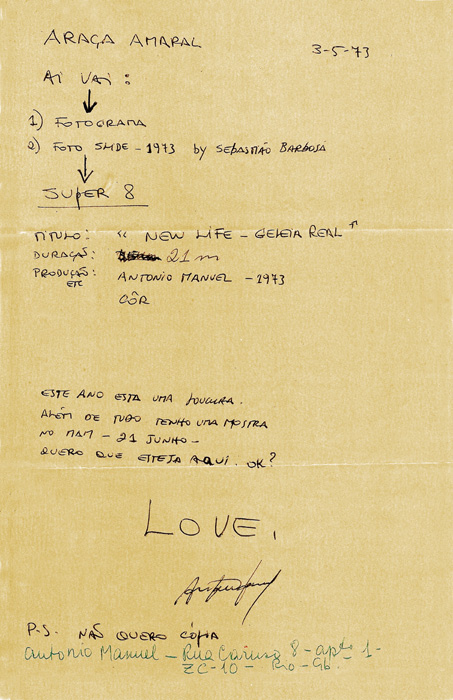 ARAÇA AMARAL
3-5-73
AI VAI:
1) FOTOGRAMA
2) FOTO SLIDE - 1973 by SEBASTIÃO BARBOSA
SUPER 8
TÍTULO: “NEW LIFE - GELEIA REAL”
DURAÇÃO: 21 m
PRODUÇÃO: ANTONIO MANUEL - 1973
ETC
CÔR
ESTE ANO ESTA UMA LOUCURA.
ALÉM DE TUDO TENHO UMA MOSTRA
NO MAM - 21 JUNHO -
QUERO QUE ESTEJA AQUI. OK?
LOVE,
P.S. NÃO QUERO CÓPIA
Antonio Manuel - Rua 8 - aptº 1 -
ZC-10 - Rio - Gb.